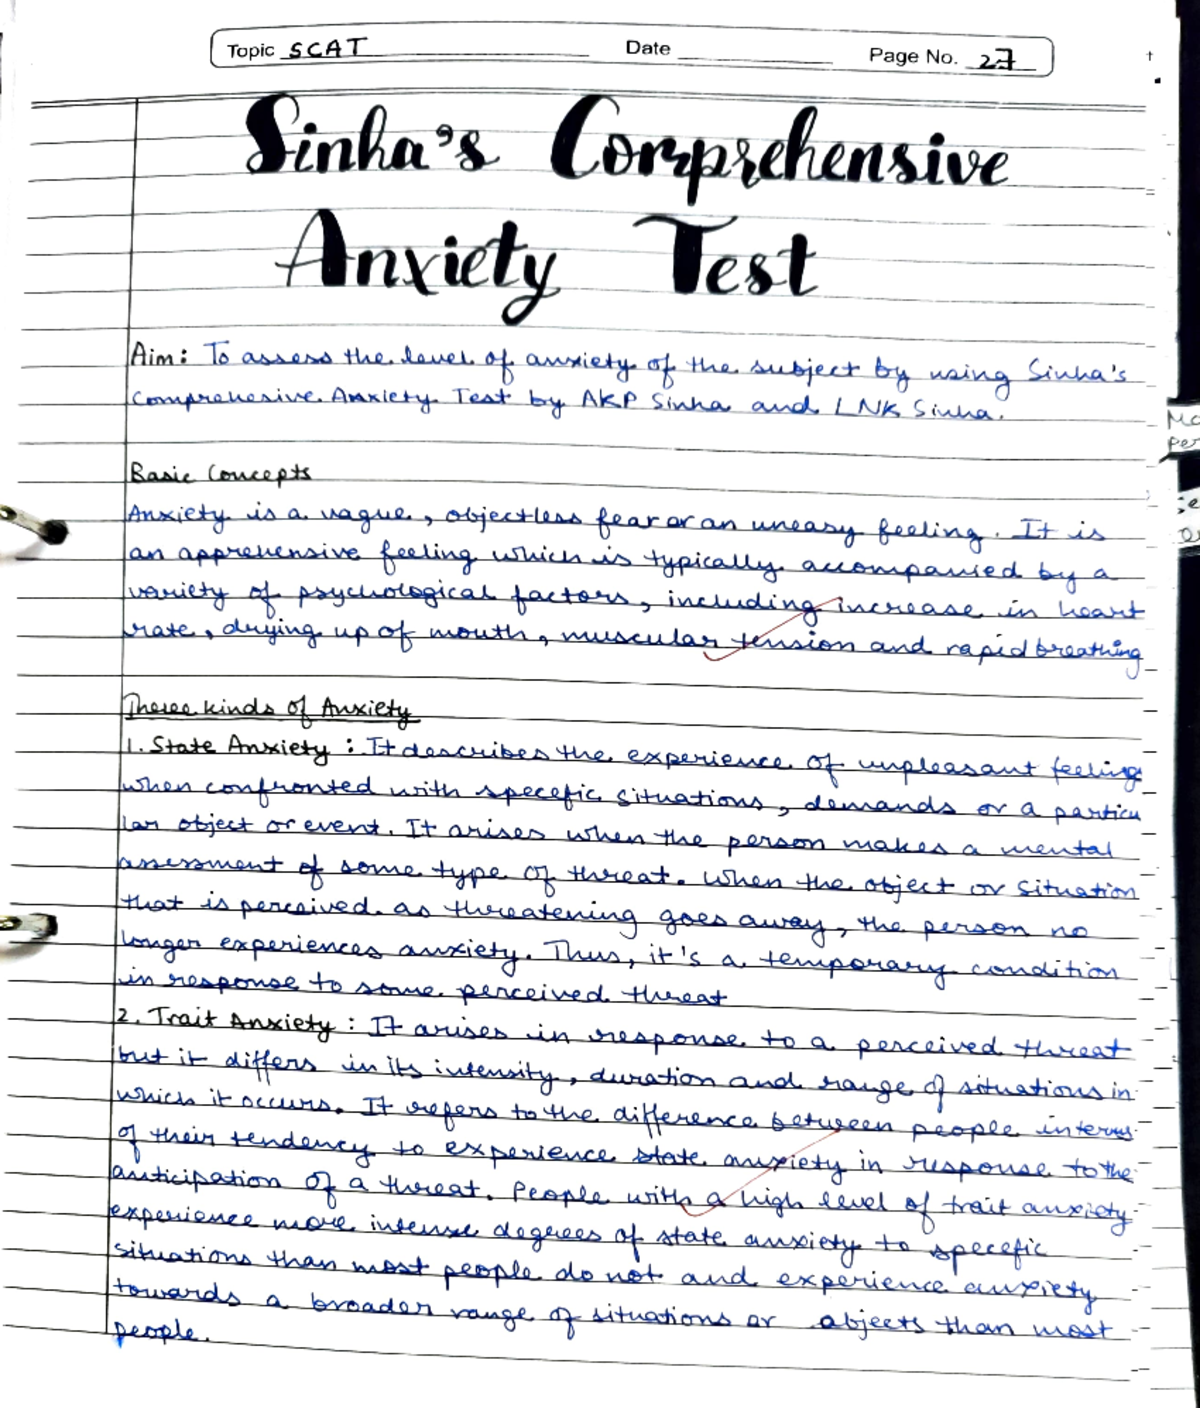 Topic SCAT Date Page No. 27
Sinha's Comprehensive
Anxiety Test
Aim: To assess the level of anxiety of the subject by using Sinha's
Comprehesive Anxiety Test by AKP Sinha and LNK Sinha.
Basic Concepts
Anxiety is a vague, objectless fear or an uneasy feeling. It is
an apprehensive feeling which is typically accompanied by a
variety of psychological factors, including increase in heart
rate, drying up of mouth, muscular tension and rapid breathing
Three kinds of Anxiety
1. State Anxiety: It describes the experience of unpleasant feeling
when confronted with specefic situations, demands or a particu
lar object or event. It arises when the person makes a mental
assessment of some type of threat. When the object or situation
that is perceived as threatening goes away, the person no
longer experiences anxiety. Thus, it's a temporary condition
in response to some perceived threat
2. Trait Anxiety: It arises in response to a perceived threat
but it differs in its intensity, duration and range of situations in
which it occurs. It refers to the difference between people interms
of their tendency to experience state anxiety in response to the
anticipation of a threat. People with a high level of trait anxiety
experience more intense degrees of state anxiety to specefic
situations than most people do not and experience anxiety
towards a broader range of situations or objects than most
people.